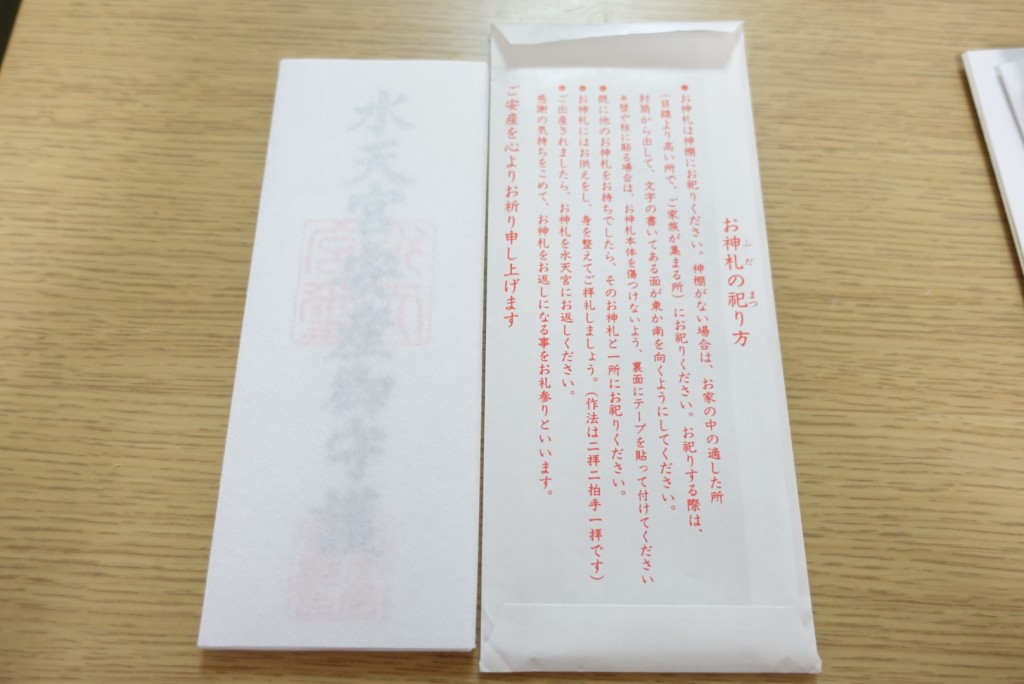 お神札の祀り方
ふだ
まつ
●お神札は神棚にお祀りください。神棚がない場合は、お家の中の適した所
(目線より高い所で、ご家族が集まる所)にお祀りください。お祀りする際は、
封筒から出して、文字の書いてある面が東か南を向くようにしてください。
＊壁や柱に貼る場合は、お神札本体を傷つけないよう、裏面にテープを貼って付けてください
●既に他のお神札をお持ちでしたら、そのお神札と一所にお祀りください。
●お神札にはお供えをし、身を整えてご拝礼しましょう。(作法は二拝二拍手一拝です)
●ご出産されましたら、お神札を水天宮にお返しください。
感謝の気持ちをこめて、お神札をお返しになる事をお礼参りといいます。
ご安産を心よりお祈り申し上げます
水天宮安産御守護